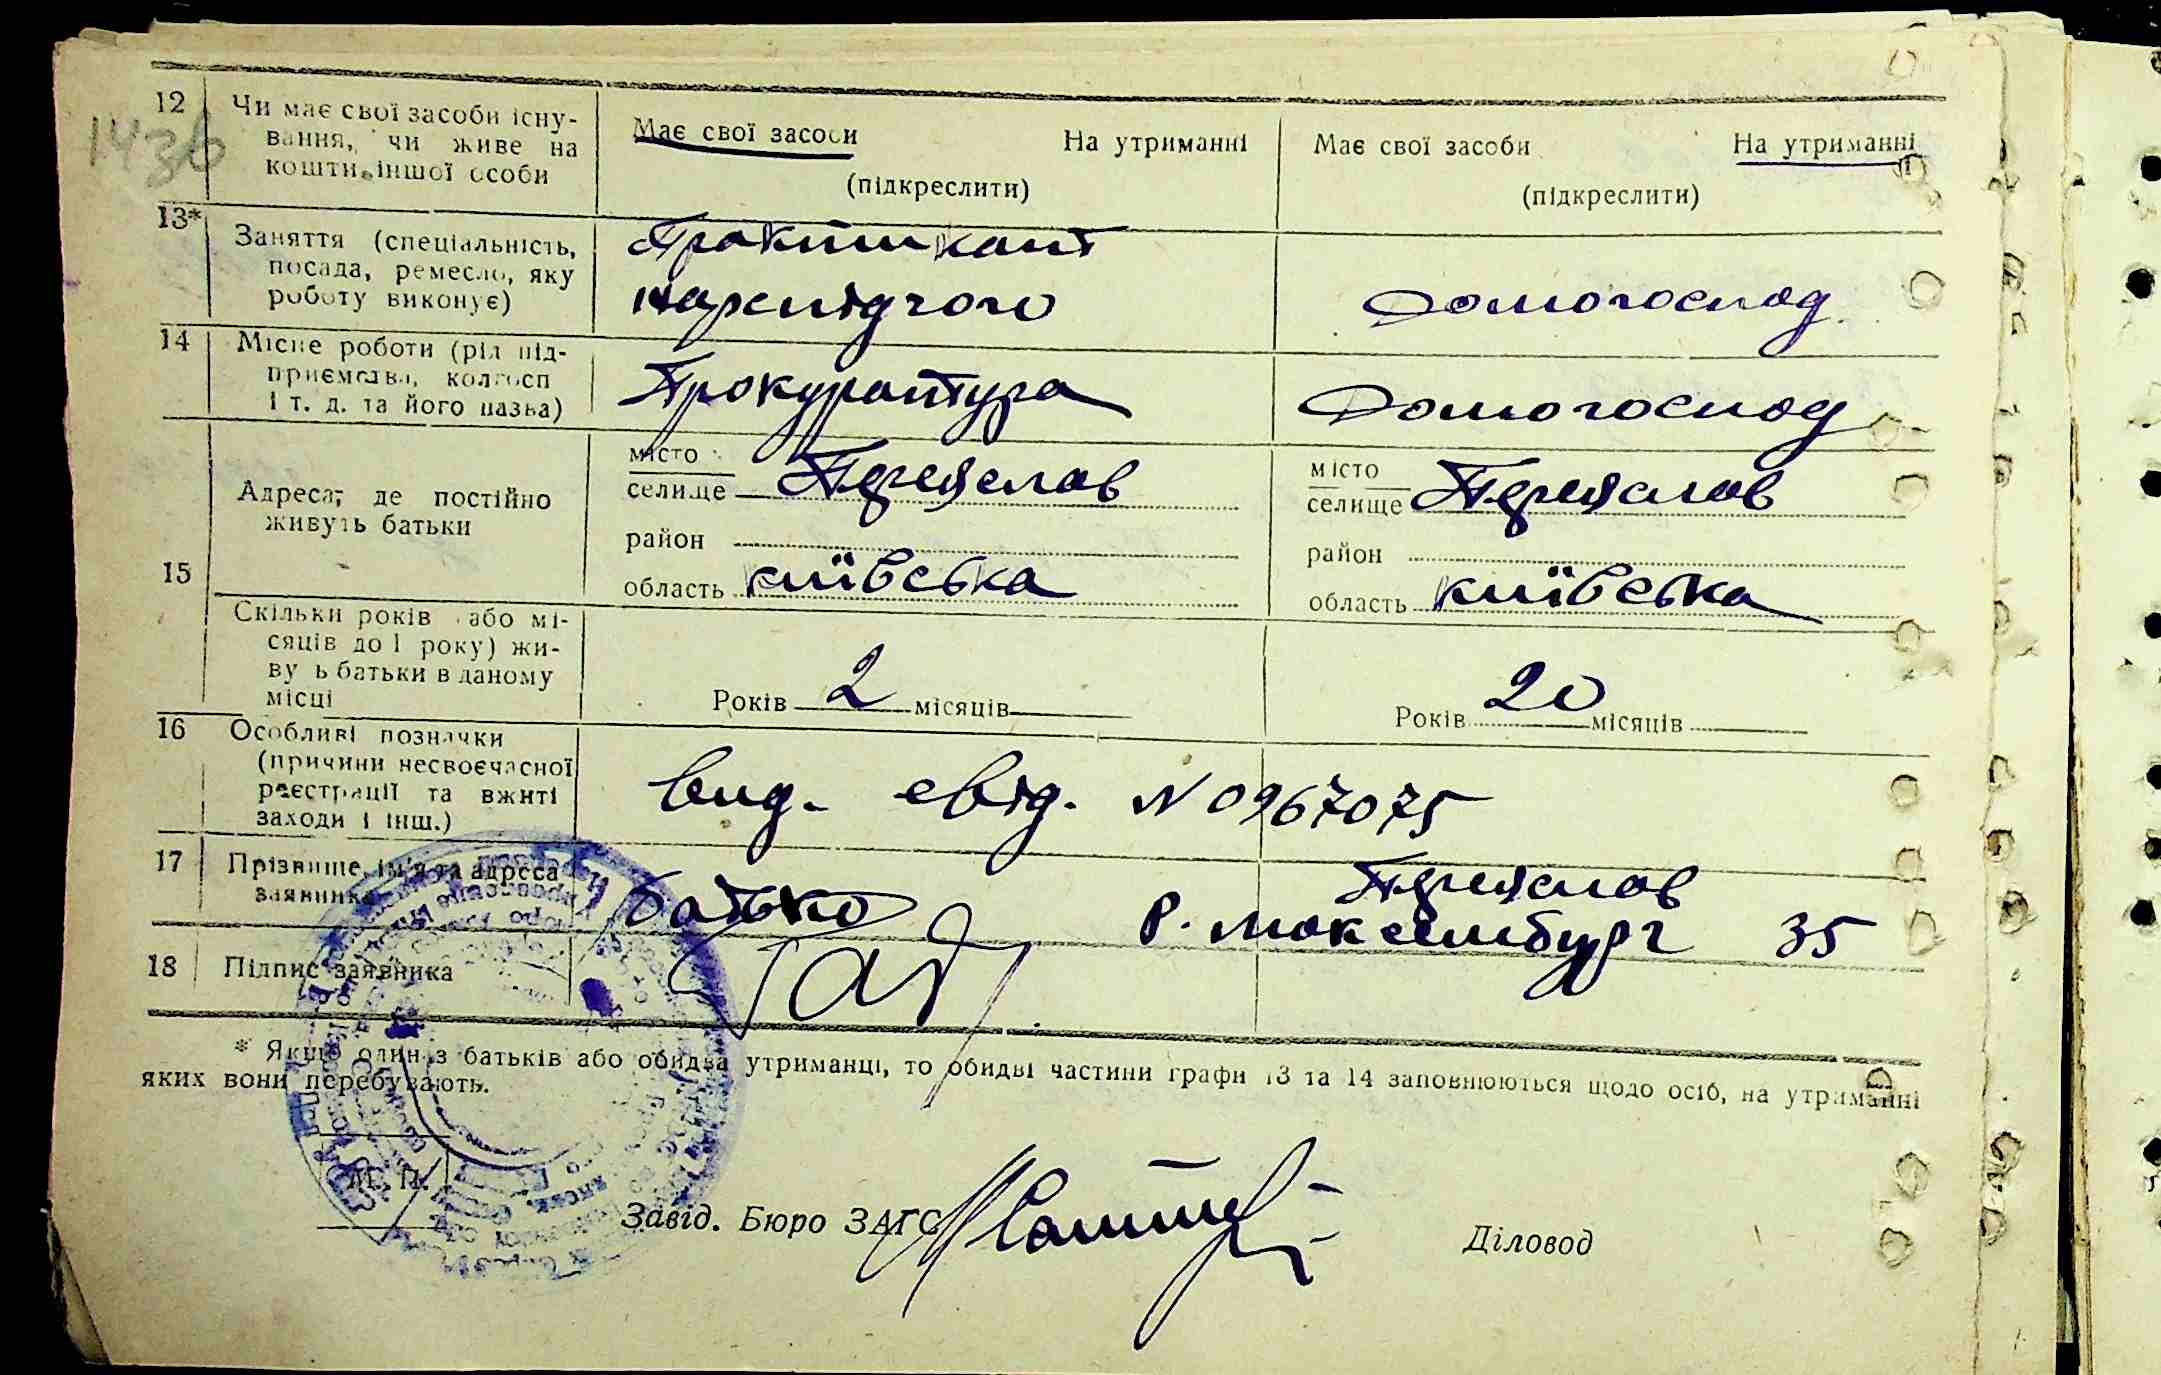 143б
12 Чи має свої засоби існу-
вання, чи живе на
кошти іншої особи
Має свої засоби На утриманні
(підкреслити)
Має свої засоби На утриманні
(підкреслити)
13* Заняття (спеціальність,
посада, ремесло, яку
роботу виконує)
Практикант
нарслідчого
Домогоспод
14 Місце роботи (рід під-
приємства, колгосп
і т. д. та його назва)
Прокуратура
Домогоспод
15 Адреса, де постійно
живуть батьки
місто
селище Переяслав
район
область Київська
місто
селище Переяслав
район
область Київська
Скільки років або мі-
сяців до 1 року) жи-
ву ь батьки в даному
місці
Років 2 місяців
Років 20 місяців
16 Особливі позначки
(причини несвоєчасної
реєстрації та вжиті
заходи і інш.)
Вид. свід. N 0967075
17 Прізвище, ім'я та адреса
заявника
батько Переяслав
Р. Люксембург 35
18 Підпис заявника
* Якщо один з батьків або обидва утриманці, то обидві частини графи 13 та 14 заповнюються щодо осіб, на утриманні
яких вони перебувають.
М. П.
Завід. Бюро ЗАГС
Діловод